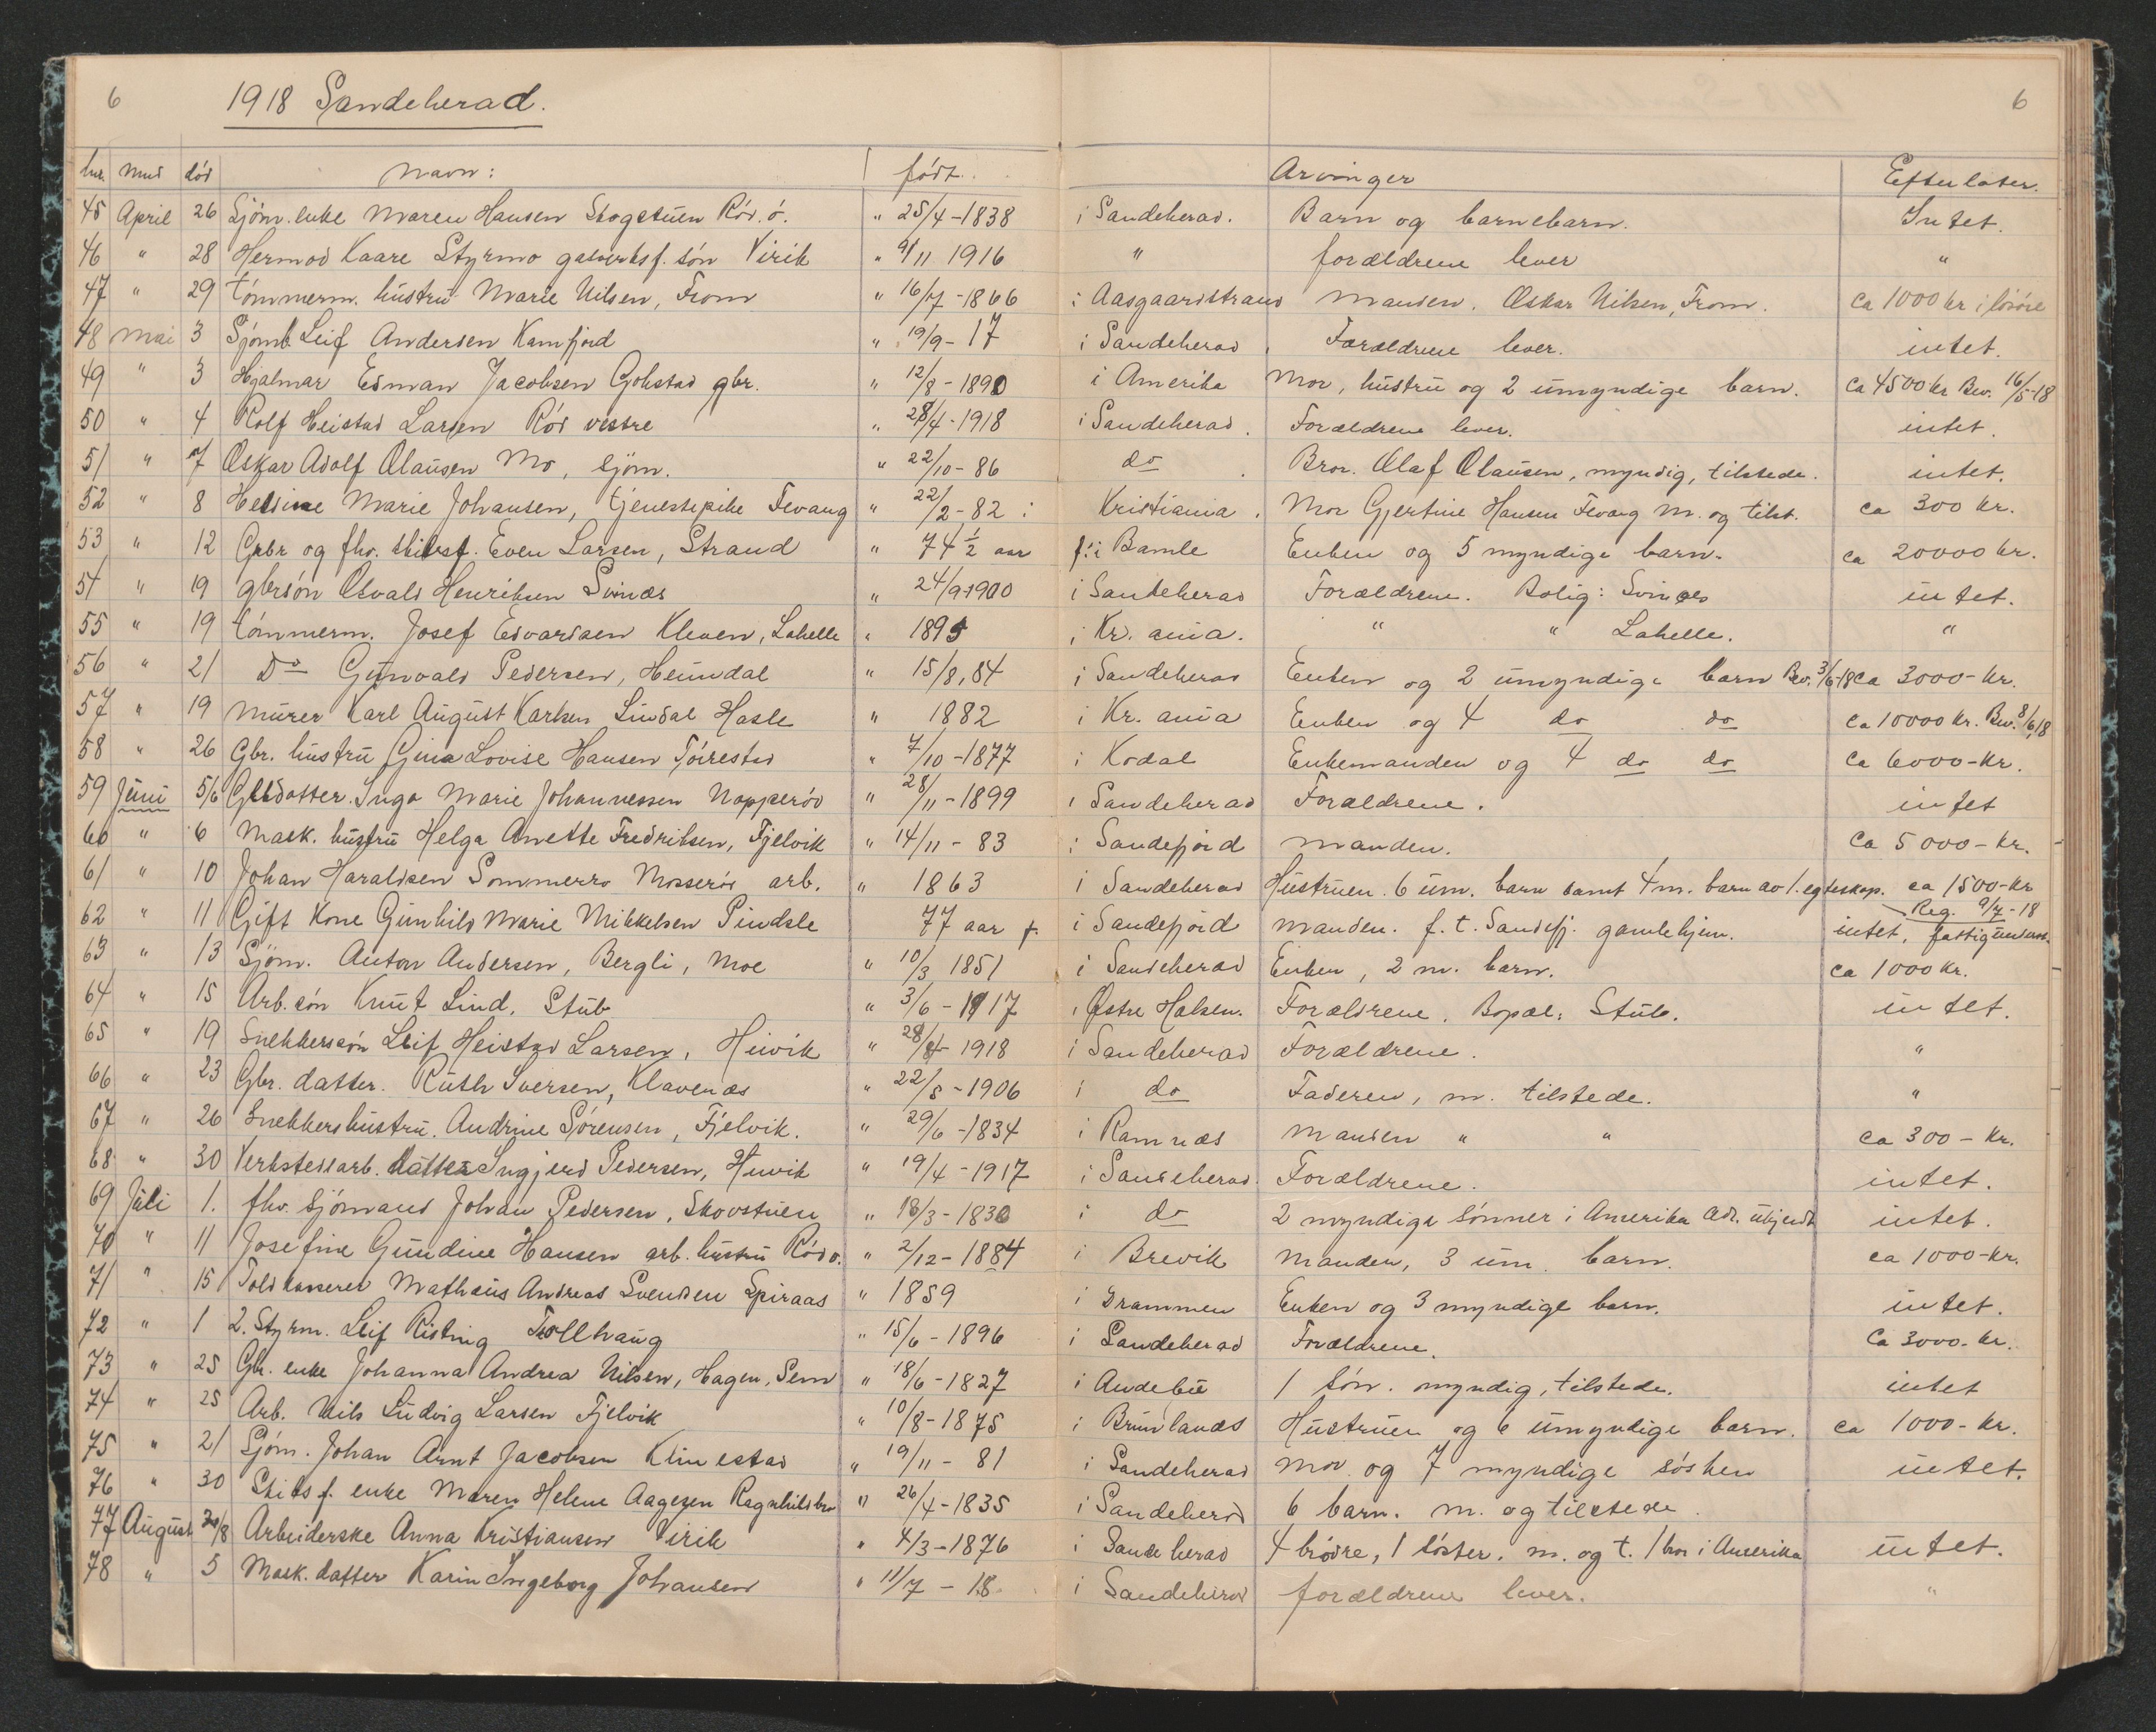 6 1918 Sandeherad. 6
lnr. mnd død Navn: født Arvinger Efterlater.
45 April 26 Sjöm. enke Maren Hansen Skogstuen Röd. ö. " 25/4-1838 i Sandeherad. Barn og barnebarn. Intet.
46 " 28 Hermod Kaare Styrmo gasverksf. sön Virik " 9/11 1916 " forældrene lever "
47 " 29 tömmerm. hustru Marie Nilsen, From " 16/7-1866 i Aasgaardstrand Manden. Oskar Nilsen, From. Ca 1000 kr i lösöre
48 Mai 3 Leif Andersen Kamfjord " 19/9-17 i Sandeherad. Forældrene lever. intet.
49 " 3 Hjalmar Edman Jacobsen Gokstad gbr. " 12/8-1890 i Amerika Mor, hustru og 2 umyndige barn. Ca 4500 kr Bev. 16/5-18
50 " 4 Rolf Heistad Larsen Röd vestre " 28/4-1918 i Sandeherad. Forældrene lever. intet.
51 " 7 Oskar Adolf Olausen Mo, sjöm. " 22/10-86 do. Bror. Olaf Olausen, myndig, tilstede. intet.
52 " 8 Marie Johansen, tjenestepike Fevang " 22/2-82 i Kristiania. Mor Gjertine Hansen Fevang m. og tilst. ca 300 kr.
53 " 12 Gbr og fhv. skibsf. Even Larsen, Strand " 74 ½ aar f. i Bamle Enken og 5 myndige barn. ca 20000 kr.
54 " 19 gbrsön Osvald Henriksen Svinæs " 24/9-1900 i Sandeherad Forældrene. Bolig: Svinæs intet.
55 " 19 tömmerm. Josef Edvardsen Kleven, Lahelle " 1895 i Kr. ania. " " Lahelle. "
56 " 21 Do Gunvald Pedersen, Heimdal " 15/8,84 i Sandeherad Enken og 2 umyndige barn Bev. 3/6-18 ca 3000-kr.
57 " 19 murer Karl August Karlsen Lindal Hasle " 1882 i Kr. ania Enken og 4 do do ca 10000 kr. Bev. 8/6,18
58 " 26 Gbr. hustru Gina Lovise Hansen " 7/10-1877 i Kodal Enkemanden og 4 do do ca 6000-kr.
59 Juni 5/6 Inga Marie Johannessen Napperöd " 28/11-1899 i Sandeherad Forældrene. intet
60 " 6 Mask. hustru Helga Anette Fredriksen, Fjelvik " 14/11-83 i Sandefjord Manden. Ca 5000-kr.
61 " 10 Johan Haraldsen Sommerro Mosserød arb. " 1863 i Sandeherad Hustruen. 6 um. barn samt 4 m. barn av 1. egteskap. ca 1500-kr
Reg. 9/7-18
62 " 11 Gift Kone Gunhild Marie Mikkelsen Pindsle 77 aar f. i Sandefjord Manden. f. t. Sandefj. gamlehjem. intet, fattigunderst.
63 " 13 Sjöm. Anton Andersen, Bergli, Moe " 10/3 1851 i Sandeherad Enken, 2 m. barn. ca 1000 kr.
64 " 15 Arb. sön Knut Lind. Stub " 3/6-1917 i Østre Halsen. Forældrene. Bopæl: Stub. intet.
65 " 19 Snekkersön Leif Heistad Larsen, Huvik " 28/4-1918 i Sandeherad Forældrene. "
66 " 23 Gbr. datter. Ruth Iversen, Klavenæs " 22/8-1906 i do Faderen, m. tilstede. "
67 " 26 Snekkershustru. Andrine Sörensen, Fjelvik. " 29/6-1834 i Ramnæs Manden " " ca 300-kr.
68 " 30 Verkstedsarb. datter Ingjerd Pedersen, Huvik " 19/4-1917 i Sandeherad. Forældrene. intet.
69 Juli 1. fhv. sjömand Johan Pedersen, Skovstuen " 18/3-1830 i do 2 myndige sönner i Amerika adr. ubjendt intet.
70 " 11 Josefine Gundine Hansen arb. hustru Röd ö. " 2/12-1884 i Brevik Manden, 3 um. barn. ca 1000-kr.
71 " 15 Toldkasserer Mathæus Andreas Svendsen Spiraas " 1859 i Drammen Enken og 3 myndige barn. intet.
72 " 1 2. Styrm. Leif Risting Tollhaug " 15/6-1896 i Sandeherad Forældrene. Ca 3000-kr.
73 " 25 Gbr. enke Johanna Andrea Nilsen, Hagen, Sem " 18/6-1827 i Andebu 1 sön. myndig, tilstede. intet
74 " 25 Arb. Nils Ludvig Larsen Fjelvik " 10/8-1875 i Brunlanæs Hustruen og 6 umyndige barn. ca 1000-kr.
75 " 21 Sjöm. Johan Arnt Jacobsen Klinestad " 19/11-81 i Sandeherad Mor og 7 myndige sösken intet.
76 " 30 Skibsf. enke Maren Helene Aagesen Ragnhildsbro " 26/4-1835 i Sandeherad 6 barn. m. og tilstede.
77 August Arbeiderske Anna Kristiansen Virik " 4/3-1876 i Sandeherad 4 brödre, 1 söster. m. og t. 1 bror i Amerika intet.
78 " 5 Mask. datter Karin Ingeborg Johansen " 11/7-18. i Sandeherad forældrene lever. "